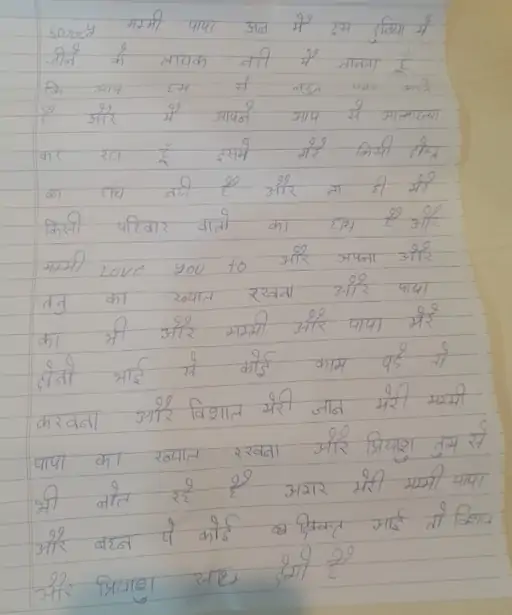 sorry मम्मी पापा अब मैं इस दुनिया में
जीने के लायक नही मैं जानता हूँ
कि आप हम से बहुत प्यार करते
है और मैं आपने आप से आत्महत्या
कर रहा हूँ इसमें मेरे किसी दोस्त
का हाथ नही है और ना ही मेरे
किसी परिवार वालो का हाथ है और
मम्मी LOVE you to और अपना और
तनु का ख्याल रखना और पापा
का भी और मम्मी और पापा मेरे
दोनो भाई से कोई काम पडे तो
करवना और विशाल मेरी जान मेरी मम्मी
पापा का ख्याल रखना और प्रियाशु तुम से
भी बोल रहे है अगर मेरी मम्मी पापा
और बहन पे कोई दिक्कत आई तो विशाल
और प्रियाशु होगी है